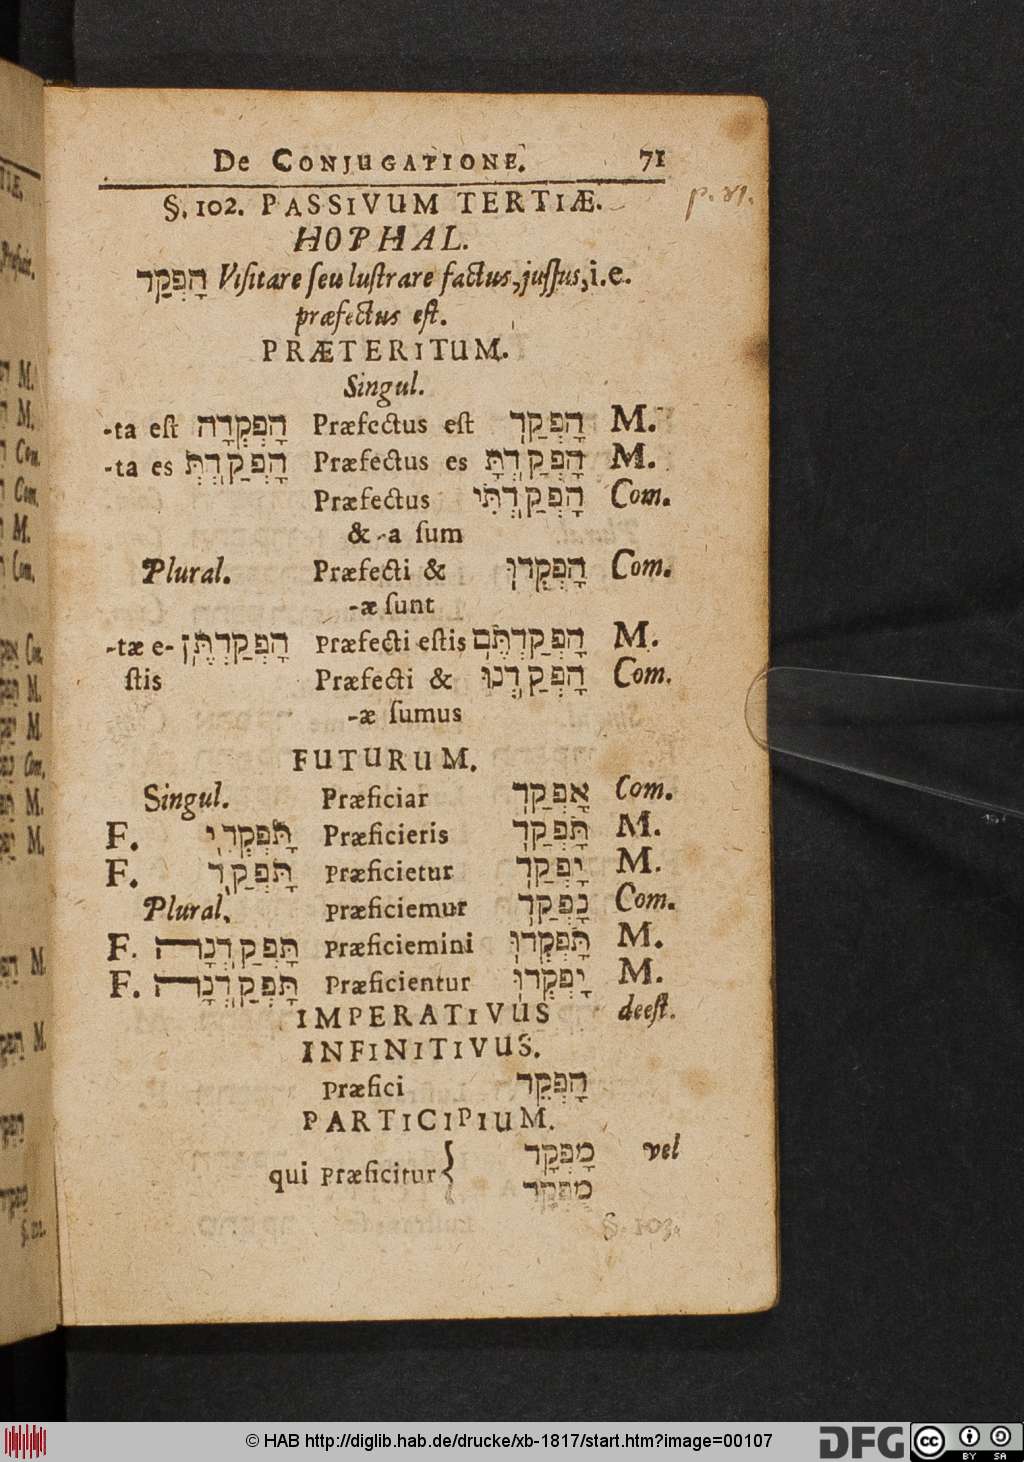 De CONJUGATIONE. 71
§. 102. PASSIVUM TERTIÆ.
p. 71.
HOPHAL.
הָפְקַד Viſitare ſeu luſtrare factus, juſſus, i.e.
præfectus eſt.
PRÆTERITUM.
Singul.
-ta eſt הָפְקְדָה Præfectus eſt הָפְקַד M.
-ta es הָפְקַדְתְּ Præfectus es הָפְקַדְתָּ M.
Præfectus הָפְקַדְתִּי Com.
& -a ſum
Plural. Præfecti & הָפְקְדוּ Com.
-æ ſunt
-tæ e- הָפְקַדְתֶּן Præfecti eſtis הָפְקַדְתֶּם M.
ſtis Præfecti & הָפְקַדְנוּ Com.
-æ ſumus
FUTURUM.
Singul. Præficiar אָפְקַד Com.
F. תָּפְקְדִי Præficieris תָּפְקַד M.
F. תָּפְקַד Præficietur יָפְקַד M.
Plural. Præficiemur נָפְקַד Com.
F. תָּפְקַדְנָה Præficiemini תָּפְקְדוּ M.
F. תָּפְקַדְנָה Præficientur יָפְקְדוּ M.
IMPERATIVUS deeſt.
INFINITIVUS.
Præfici הָפְקֵד
PARTICIPIUM.
qui Præficitur { מָפְקָד vel
מֻפְקָד
§. 103.
© HAB http://diglib.hab.de/drucke/xb-1817/start.htm?image=00107
DFG
cc BY SA